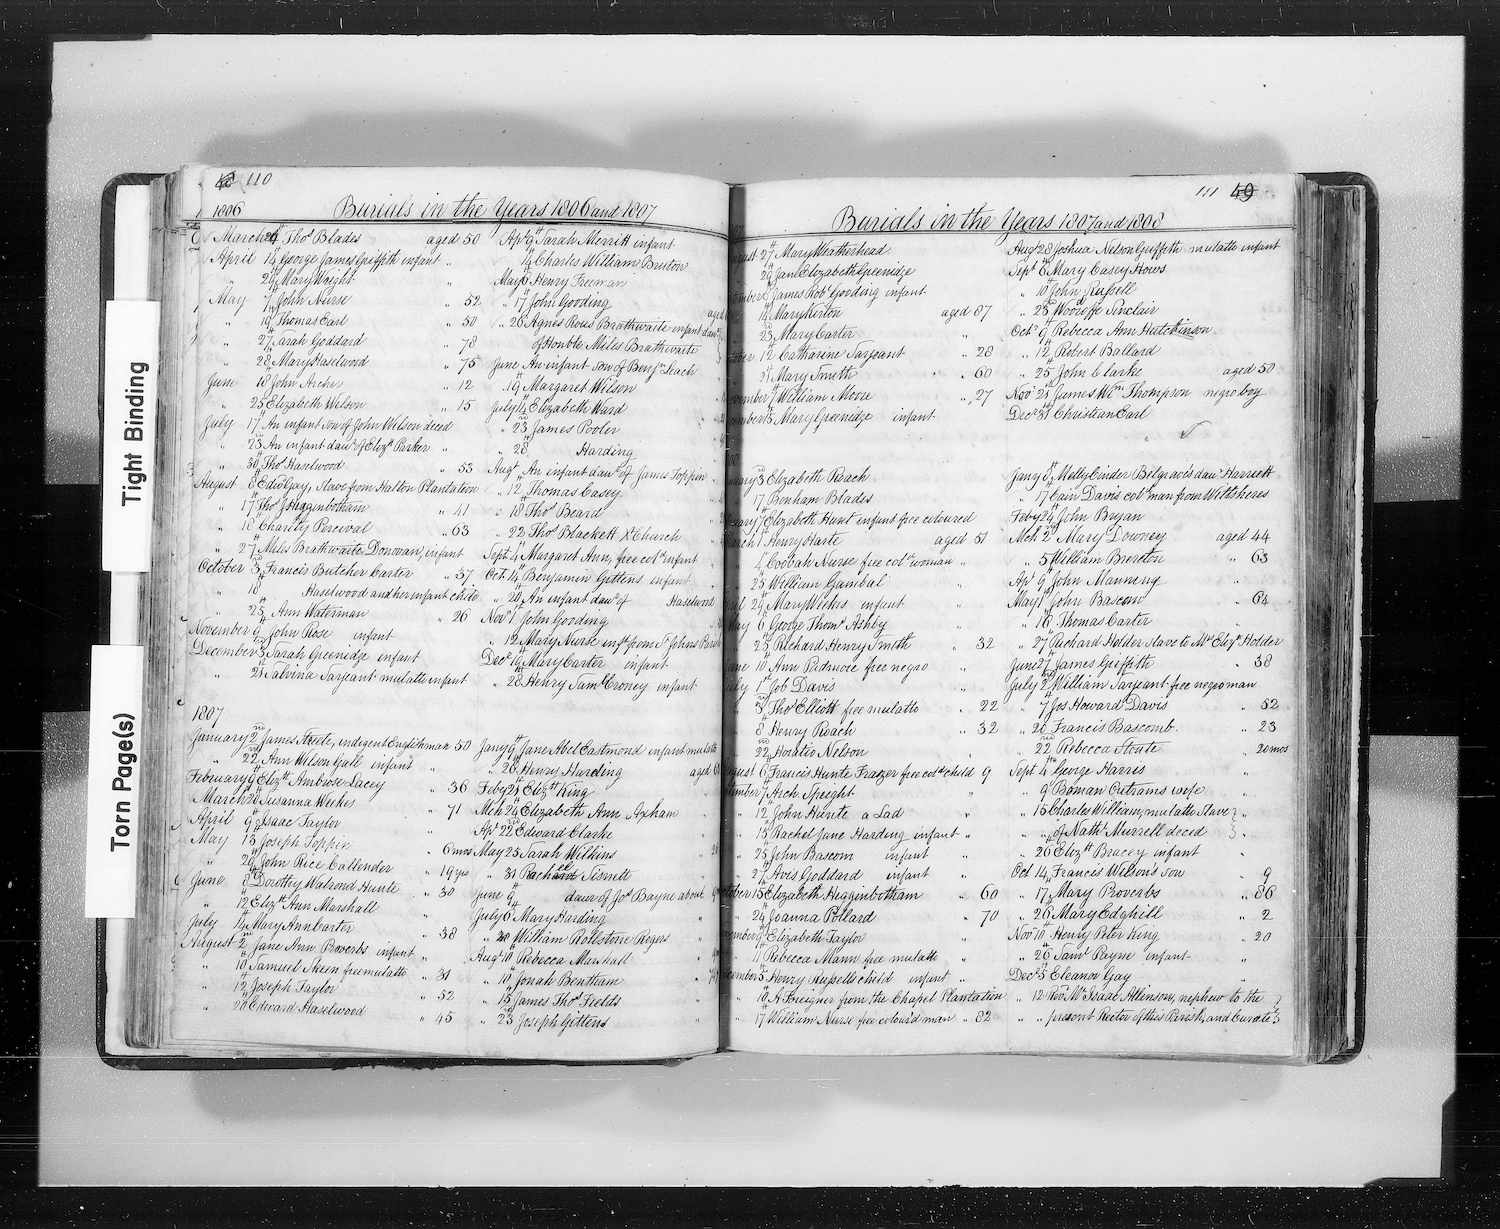 Tight Binding
Torn Page(s)
48 110
1806 Burials in the Years 1806 and 1807
March 24 Thos Blades aged 50
April 14 George James Griffith infant "
" 20 Mary Wright
" May 7 John Nurse " 52
" 19 Thomas Earl " 50
" 27 Sarah Goddard " 78
" 28 Mary Haselwood " 75
June 10 John Archer " 12
" 25 Elizabeth Welson " 15
July 17 An infant son of John Wilson deced
" 23 An infant daur of Elizh Parker "
" 30 Thos Haselwood " 53
August 8 Edwd Gay, slave from Halton Plantation
" 17 Thos J Higginbotham " 41
" 18 Charity Percival " 63
" 27 Miles Brathwaite Donovan, infant
October 3 Francis Butcher Carter " 57
" 18 Haselwood and her infant child
" 25 Ann Waterman " 26
November 9 John Rose infant
December 3 Sarah Greenidge infant
" 21 Salvina Sargeant mulatto infant
1807
January 2 James Steele, indigent Englishman 50
" 22 Ann Wilson Gall infant "
February 9 Elizth Ambrose Lacey " 36
March 26 Susanna Weekes 71
April 9 Isaac Taylor "
May 13 Joseph Toppin " 6 mos
" 24 John Rice Callender " 19 yrs
June 8 Dorothy Walrond Hunte " 30
" 12 Elizth Ann Marshall
July 14 Mary Ann Carter " 38
August 2 Jane Ann Proverbs infant "
" 10 Samuel Skeen free mulatto " 31
" 12 Joseph Taylor " 52
" 20 Edward Haselwood " 45
Apl 9 Sarah Merritt infant
" 14 Charles William Bruton
May 6 Henry Freeman
" 17 John Gooding
" 26 Agnes Rous Brathwaite infant daur
of Honble Miles Brathwaite
June An infant son of Benjn Leach
" 19 Margaret Wilson
July 14 Elizabeth Ward
" 23 James Pooler
" 28 Harding
Augt An infant daur of James Toppin
" 12 Thomas Casey
" 18 Thos Beard
" 22 Thos Blackett Xt Church
Sept 4 Margaret Ann, free cold infant
Oct 14 Benjamin Gittens infant
" 20 An infant daur of Haselwood
Novr 1 John Gooding
" 12 Mary Nurse inft from St Johns Parish
Decr 16 Mary Carter infant
" 28 Henry Saml Croney infant
Jany 9 Jane Abel Eastmond infant mulatto
" 26 Henry Harding aged
Feby 21 Elizth King
Mch 24 Elizabeth Ann Axham
Apl 22 Edward Clarke
May 25 Sarah Wilkins
" 31 Rachael Sisnett
June 9 daur of Jos Bayne about
July 6 Mary Harding
" 20 William Rollstone Rogers
Augt 10 Rebecca Marshall
" 10 Jonah Bentham
" 15 James Thos Fields
" 23 Joseph Gittens
111 49
Burials in the Years 1807 and 1808
27 Mary Weatherhead
28 Jane Elizabeth Greenidge
James Robt Gooding infant
14 Mary Kirton aged 87
23 Mary Carter "
12 Catharine Sargeant " 28
31 Mary Smith " 60
William Moore " 27
3 Mary Greenidge infant
3 Elizabeth Roach
17 Benham Blades
7 Elizabeth Hunt infant free coloured
1 Henry Harte aged 51
4 Coobah Nurse free cold woman "
25 William Gambal
29 Mary Weekes infant "
6 George Thoms Ashby
25 Richard Henry Smith " 32
10 Ann Pidmore free negro
1st Job Davis
" 3 Thos Elliott free mulatto " 22
" 8 Henry Roach " 32
" 22 Horatio Nelson
6 Francis Hunte Frazer free cold child 9
7 Arch Speight "
" 12 John Hunte a Lad "
" 13 Rachel Jane Harding infant "
" 25 John Bascom infant "
" 27 Aves Goddard infant "
15 Elizabeth Higginbotham " 60
" 24 Joanna Pollard " 70
9 Elizabeth Taylor "
11 Rebecca Mann free mulatto "
5 Henry Russells child infant "
" 10 A Foreigner from the Chapel Plantation
" 17 William Nurse free colour'd man " 82
Augt 28 Joshua Nelson Griffith mulatto infant
Sept 8 Mary Casey Hows
" 10 John Russell
" 25 Sinclair
Octr 9 Rebecca Ann Hutchinson
" 12 Robert Ballard
" 25 John Clarke aged 50
Novr 21 James Wm Thompson negro boy
Decr 31 Christian Earl
Jany 8 Melly Cinder Belgraves daur Harriett
" 17 Cain Davis cold man from Wiltsheres
Feby 24 John Bryan
Mch 2 Mary Downey aged 44
" 5 William Brereton " 63
Apl 9 John Manning "
May 1 John Bascom " 64
" 18 Thomas Carter "
" 27 Richard Holder slave to Mrs Elizh Holder
June 27 James Griffith " 38
July 2 William Sargeant free negro man
" 7 Jos Howard Davis " 52
" 20 Francis Bascomb " 23
" 22 Rebecca Stoute " 20 mos
Sept 4 George Harris "
" 9 Boman Outrams wife "
" 15 Charles William, mulatto slave } "
" " of Nathl Murrell deced } "
" 26 Elizth Bracey infant "
Oct 14 Francis Wilson's son " 9
" 17 Mary Proverbs " 86
" 26 Mary Edghill " 2
Novr 10 Henry Peter King " 20
" 26 Saml Payne infant "
Decr 5 Eleanor Gay
" 12 Revd Mr Isaac Atkinson, nephew to the }
" " present Rector of this Parish, and Curate }